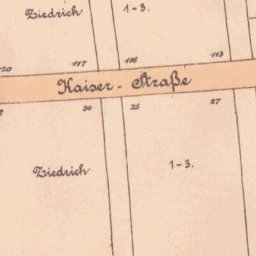 Ziedrich 1-3.
120 117 116 113
Kaiser-Straße
24 25 27
Ziedrich 1-3.